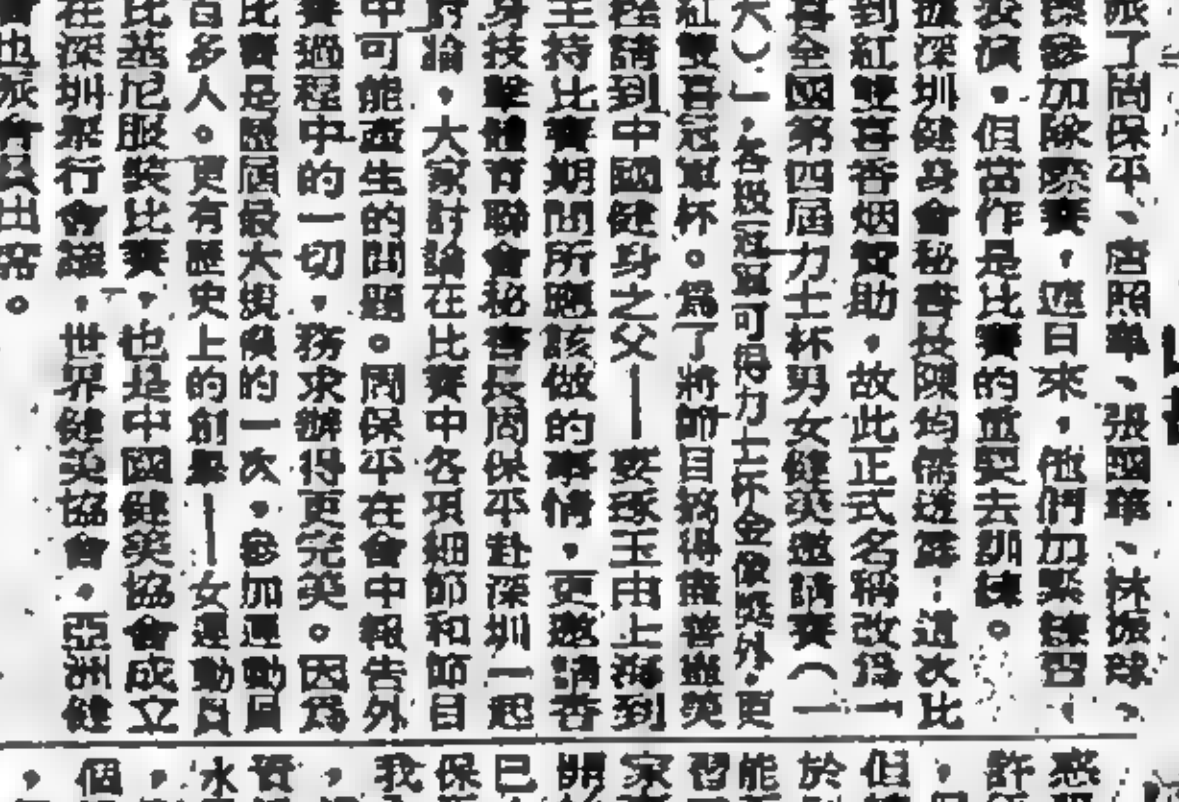 旅了周保平、唐照華、張國華、林振球、
際參加隊際賽，連日來，他們加緊練習，
表演，但當作是比賽的重要去訓練。
據深圳健身會秘書長陳均儒透露：這次比
到紅雙喜香烟贊助，故此正式名稱改爲一
喜全國第四屆力士杯男女健美邀請賽（一
大）」，各級冠軍可得力士杯金像獎外，更
紅雙喜冠軍杯。爲了將節目搞得盡善盡美
程請到中國健身之父——婁琢玉由上海到
主持比賽期間所應該做的事情，更邀請香
身技擊體育聯會秘書長周保平赴深圳一起
討論，大家討論在比賽中各項細節和節目
中可能產生的問題。周保平在會中報告外
賽過程中的一切，務求辦得更完美。因爲
比賽是歷屆最大規模的一次，參加運動員
百多人。更有歷史上的創舉——女運動員
比基尼服裝比賽，也是中國健美協會成立
在深圳舉行會議，世界健美協會，亞洲健
也派會員出席。
惑
許
，
但
於
能
習
家
期
已
保
我
，
資
水
，
個
，